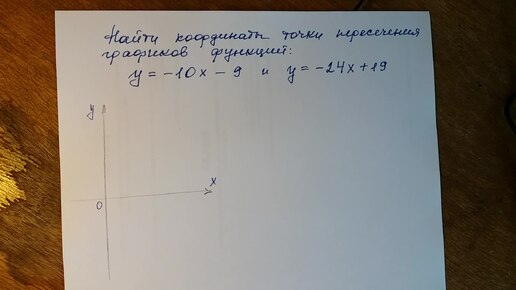 Найти координаты точки пересечения
графиков функций:
y = -10x - 9 и y = -24x + 19
y
x
0